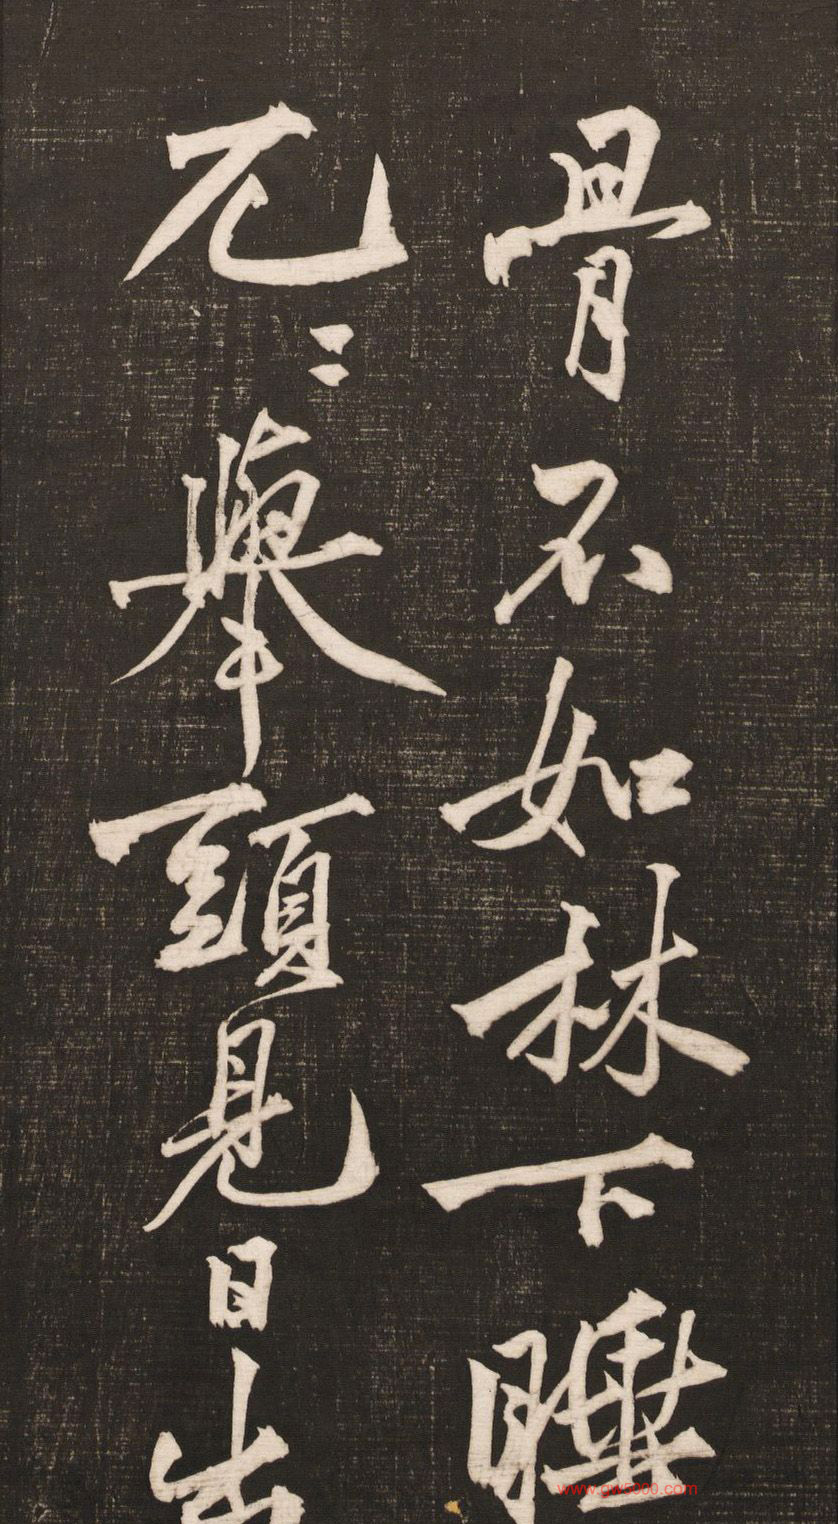 骨不如林下睡
兀〻舉頭見日出
www.gw5000.com